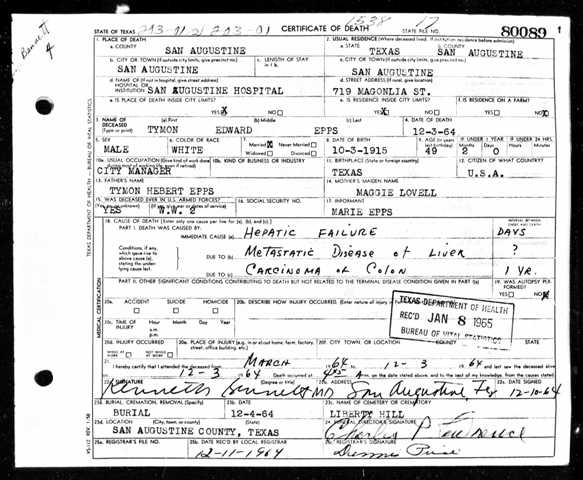 Bennett
4
1538 17
STATE OF TEXAS 203-11-21 203-01 CERTIFICATE OF DEATH STATE FILE NO. 80089
1. PLACE OF DEATH 2. USUAL RESIDENCE (Where deceased lived. If institution: residence before admission)
a. COUNTY a. STATE b. COUNTY
SAN AUGUSTINE TEXAS SAN AUGUSTINE
b. CITY OR TOWN (If outside city limits, give precinct no.) c. LENGTH OF STAY in 1 b. c. CITY OR TOWN (If outside city limits, give precinct no.)
SAN AUGUSTINE SAN AUGUSTINE
d. NAME OF (If not in hospital, give street address) d. STREET ADDRESS (If rural, give location)
HOSPITAL OR
INSTITUTION SAN AUGUSTINE HOSPITAL 719 MAGONLIA ST.
e. IS PLACE OF DEATH INSIDE CITY LIMITS? e. IS RESIDENCE INSIDE CITY LIMITS? f. IS RESIDENCE ON A FARM?
YES X NO YES X NO YES NO X
3. NAME OF DECEASED (Type or print) (a) First (b) Middle (c) Last 4. DATE OF DEATH
TYMON EDWARD EPPS 12-3-64
5. SEX 6. COLOR OR RACE 7. Married X Never Married Widowed Divorced 8. DATE OF BIRTH 9. AGE (In years last birthday) IF UNDER 1 YEAR Months Days IF UNDER 24 HRS. Hours Min.
MALE WHITE 10-3-1915 49 2 0
10a. USUAL OCCUPATION (Give kind of work done during most of working life, even if retired) 10b. KIND OF BUSINESS OR INDUSTRY 11. BIRTHPLACE (State or foreign country) 12. CITIZEN OF WHAT COUNTRY?
CITY MANAGER TEXAS U.S.A.
13. FATHER'S NAME 14. MOTHER'S MAIDEN NAME
TYMON HEBERT EPPS MAGGIE LOVELL
15. WAS DECEASED EVER IN U.S. ARMED FORCES? 16. SOCIAL SECURITY NO. 17. INFORMANT
(Yes, no, or unknown) (If yes, give war or dates of service)
YES W.W. 2 MARIE EPPS
18. CAUSE OF DEATH [Enter only one cause per line for (a), (b), and (c).] INTERVAL BETWEEN ONSET AND DEATH
PART I. DEATH WAS CAUSED BY:
IMMEDIATE CAUSE (a) HEPATIC FAILURE DAYS
Conditions, if any, which gave rise to above cause (a), stating the underlying cause last.
DUE TO (b) METASTATIC DISEASE of LIVER ?
DUE TO (c) CARCINOMA of COLON 1 YR.
PART II. OTHER SIGNIFICANT CONDITIONS CONTRIBUTING TO DEATH BUT NOT RELATED TO THE TERMINAL DISEASE CONDITION GIVEN IN PART I(a) 19. WAS AUTOPSY PERFORMED?
YES NO X
20a. ACCIDENT SUICIDE HOMICIDE 20b. DESCRIBE HOW INJURY OCCURRED. (Enter nature of injury in
20c. TIME OF INJURY Hour Month Day Year
a.m.
p.m.
TEXAS DEPARTMENT OF HEALTH
REC'D JAN 8 1965
BUREAU OF VITAL STATISTICS
20d. INJURY OCCURRED WHILE AT WORK NOT WHILE AT WORK 20e. PLACE OF INJURY (e.g. in or about home, farm, factory, street, office building, etc.) 20f. CITY, TOWN, OR LOCATION COUNTY STATE
21. I hereby certify that I attended the deceased from MARCH 1964 to 12-3 1964 and last saw the deceased alive
on 12-3 1964 Death occurred at m. on the date stated above; and to the best of my knowledge, from the causes stated.
22a. SIGNATURE (Degree or title) 22b. ADDRESS 22c. DATE SIGNED
Kenneth Bennett MD San Augustine, Tex 12-10-64
23a. BURIAL, CREMATION, REMOVAL (Specify) 23b. DATE 23c. NAME OF CEMETERY OR CREMATORY
BURIAL 12-4-64 LIBERTY HILL
23d. LOCATION (City, town, or county) (State) 24. FUNERAL DIRECTOR'S SIGNATURE
SAN AUGUSTINE COUNTY, TEXAS Charles P.
25a. REGISTRAR'S FILE NO. 25b. DATE REC'D BY LOCAL REGISTRAR 25c. REGISTRAR'S SIGNATURE
12-11-1964
TEXAS DEPARTMENT OF HEALTH — BUREAU OF VITAL STATISTICS
MEDICAL CERTIFICATION
VS-112 REV. 1-58